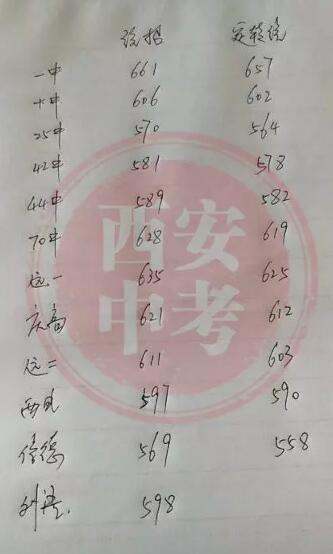 统招 定转统
一中 661 657
十中 606 602
25中 570 564
42中 581 578
44中 589 582
70中 628 619
远一 635 625
庆高 621 612
远二 611 603
西电 597 590
信德 569 558
外语 598
西安
中考